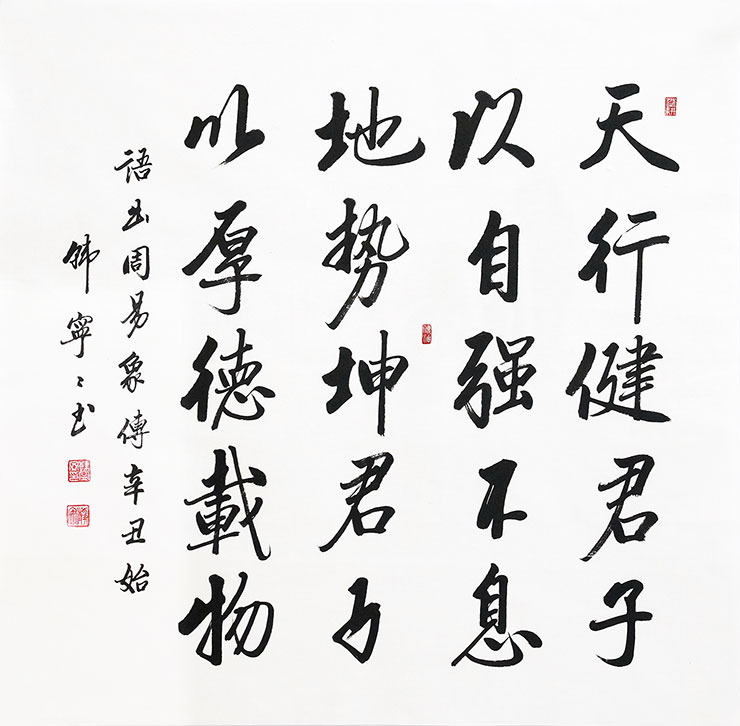 天行健君子
以自强不息
地势坤君子
以厚德載物
語出周易象傳辛丑始
韩寧寧书